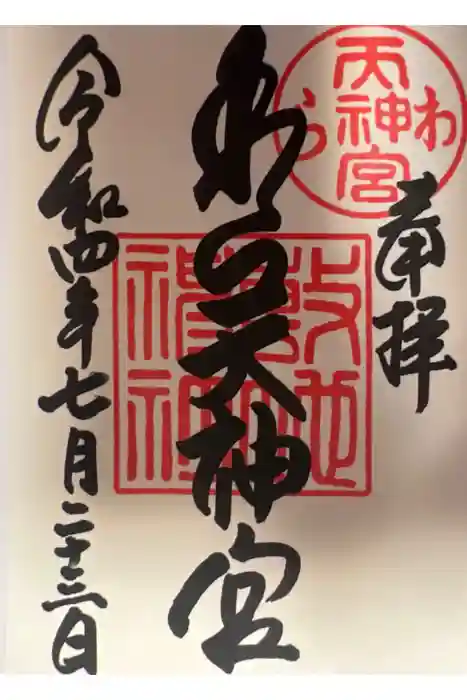 奉拝
わ
天神宮
ら
わら天神宮
令和四年七月二十三日